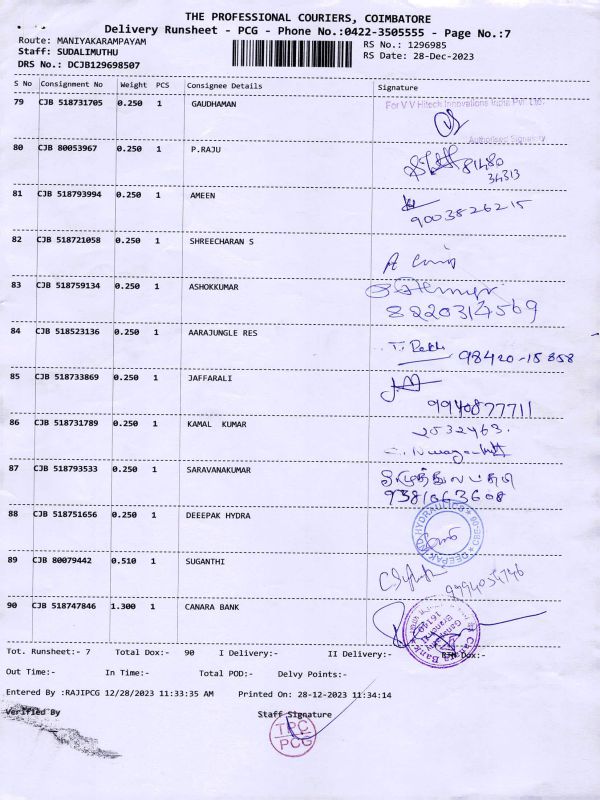 THE PROFESSIONAL COURIERS, COIMBATORE
Delivery Runsheet - PCG - Phone No.:0422-3505555 - Page No.:7
Route: MANIYAKARAMPAYAM
RS No.: 1296985
Staff: SUDALIMUTHU
RS Date: 28-Dec-2023
DRS No.: DCJB129698507
S No Consignment No Weight PCS Consignee Details Signature
79 CJB 518731705 0.250 1 GAUDHAMAN
For V V Hitech Innovations India Pvt. Ltd.
Authorised Signatory
80 CJB 80053967 0.250 1 P.RAJU
81480
34313
81 CJB 518793994 0.250 1 AMEEN
9003826215
82 CJB 518721058 0.250 1 SHREECHARAN S
83 CJB 518759134 0.250 1 ASHOKKUMAR
8220314569
84 CJB 518523136 0.250 1 AARAJUNGLE RES
98420-15858
85 CJB 518733869 0.250 1 JAFFARALI
9940877711
86 CJB 518731789 0.250 1 KAMAL KUMAR
2532463.
87 CJB 518793533 0.250 1 SARAVANAKUMAR
9381063608
88 CJB 518751656 0.250 1 DEEEPAK HYDRA
DEEPAK HYDRAULICS
89 CJB 80079442 0.510 1 SUGANTHI
90 CJB 518747846 1.300 1 CANARA BANK
Tot. Runsheet:- 7 Total Dox:- 90 I Delivery:- II Delivery:- RTN Dox:-
Out Time:- In Time:- Total POD:- Delvy Points:-
Entered By :RAJIPCG 12/28/2023 11:33:35 AM Printed On: 28-12-2023 11:34:14
Verified By Staff Signature
TPC
PCG